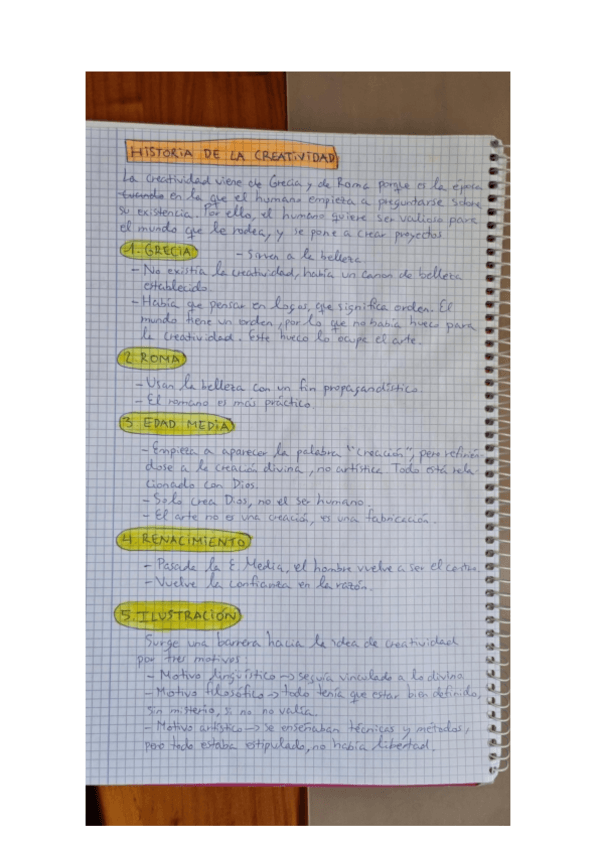 HISTORIA DE LA CREATIVIDAD
La creatividad viene de Grecia y de Roma porque es la época
cuando en la que el humano empieza a preguntarse sobre
su existencia. Por ello, el humano quiere ser valioso para
el mundo que le rodea, y se pone a crear proyectos.
1. GRECIA - Sirven a la belleza
- No existía la creatividad, había un canon de belleza
establecido.
- Había que pensar en logos, que significa orden. El
mundo tiene un orden, por lo que no había hueco para
la creatividad. Este hueco lo ocupa el arte.
2. ROMA
- Usan la belleza con un fin propagandístico
- El romano es más práctico.
3. EDAD MEDIA
- Empieza a aparecer la palabra "creación", pero refirién
dose a la creación divina, no artística. Todo está rela
cionado con Dios.
- Solo crea Dios, no el ser humano.
- El arte no es una creación, es una fabricación.
4. RENACIMIENTO
- Pasada la E. Media, el hombre vuelve a ser el centro
- Vuelve la confianza en la razón.
5. ILUSTRACIÓN
Surge una barrera hacia la idea de creatividad
por tres motivos
- Motivo lingüístico → seguía vinculado a lo divino.
- Motivo filosófico → todo tenía que estar bien definido,
sin misterio, si no no valía.
- Motivo artístico → se enseñaban técnicas y métodos,
pero todo estaba estipulado, no había libertad.